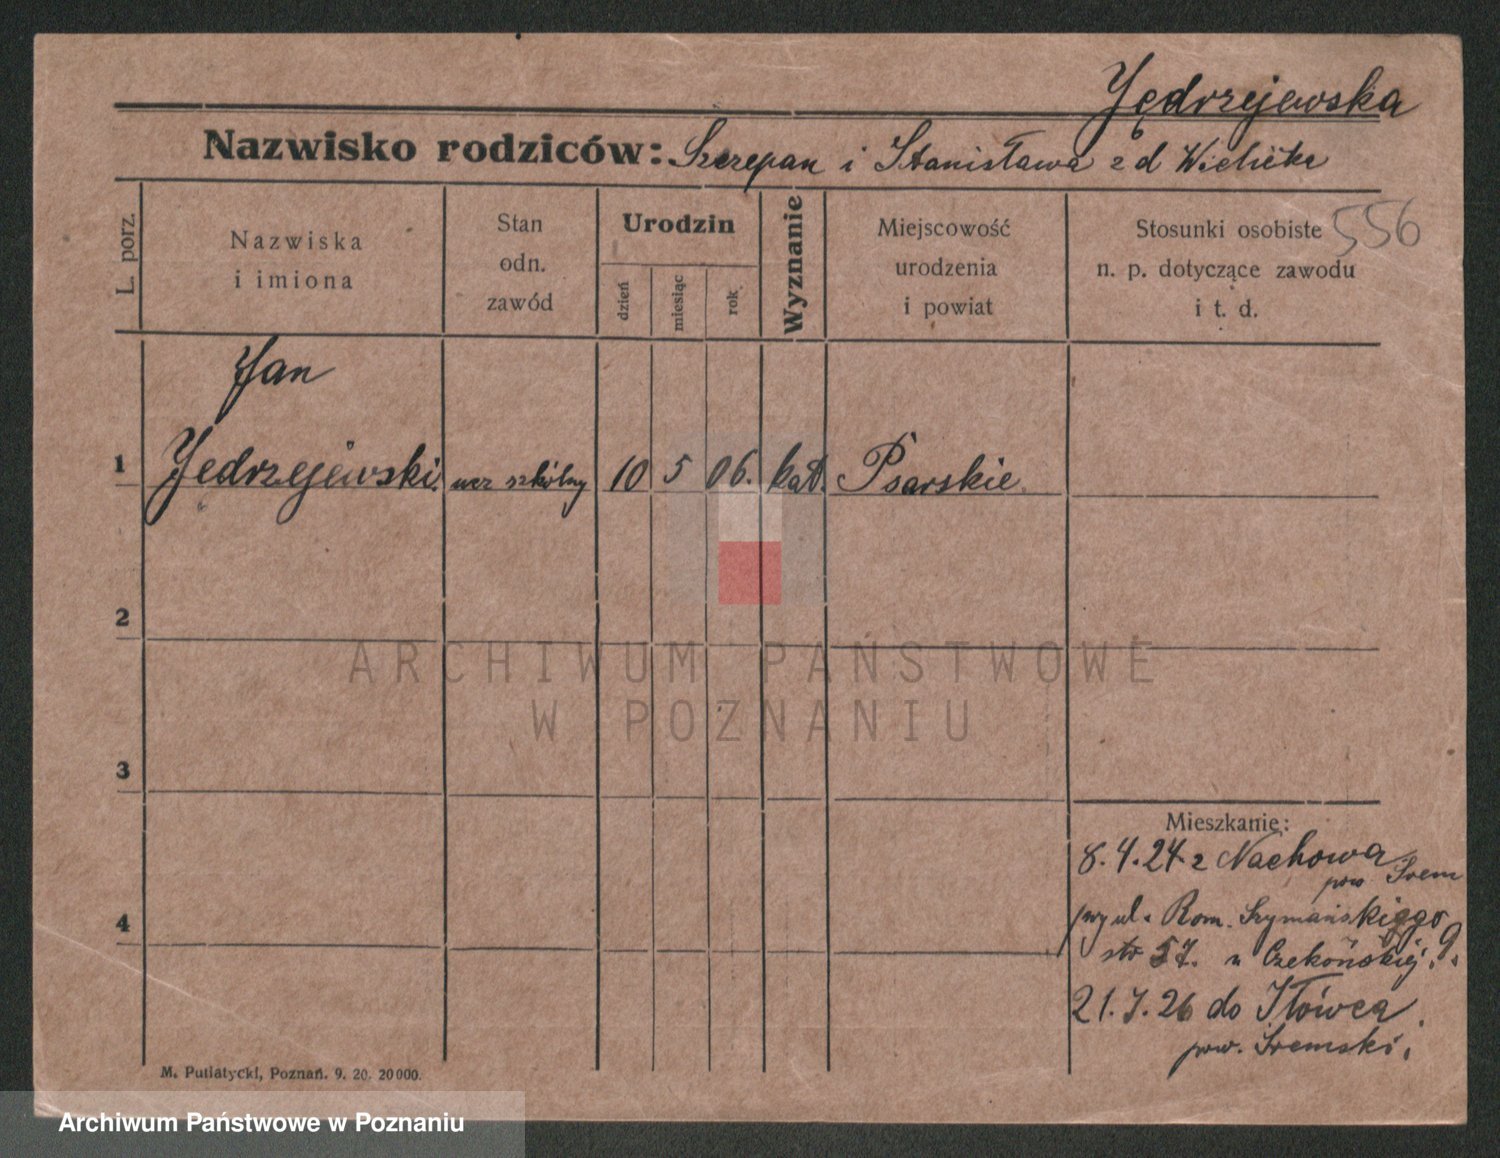 Jędrzejewska
Nazwisko rodziców: Szczepan i Stanisława z d Wielicka
L. porz.
Nazwiska
i imiona
Stan
odn.
zawód
Urodzin
dzień
miesiąc
rok
Wyznanie
Miejscowość
urodzenia
i powiat
Stosunki osobiste
n. p. dotyczące zawodu
i t. d.
556
Jan
1 Jędrzejewski ucz szkólny 10 5 06. kat. Psarskie
2
3
4
ARCHIWUM PAŃSTWOWE
W POZNANIU
Mieszkanie:
8.4.24 z Nochowa
pow Śrem
ul. Rom. Szymańskiego 9.
u
21.7.26 do Iłówca
pow. Śremski.
M. Putiatycki, Poznań. 9. 20. 20000.
Archiwum Państwowe w Poznaniu